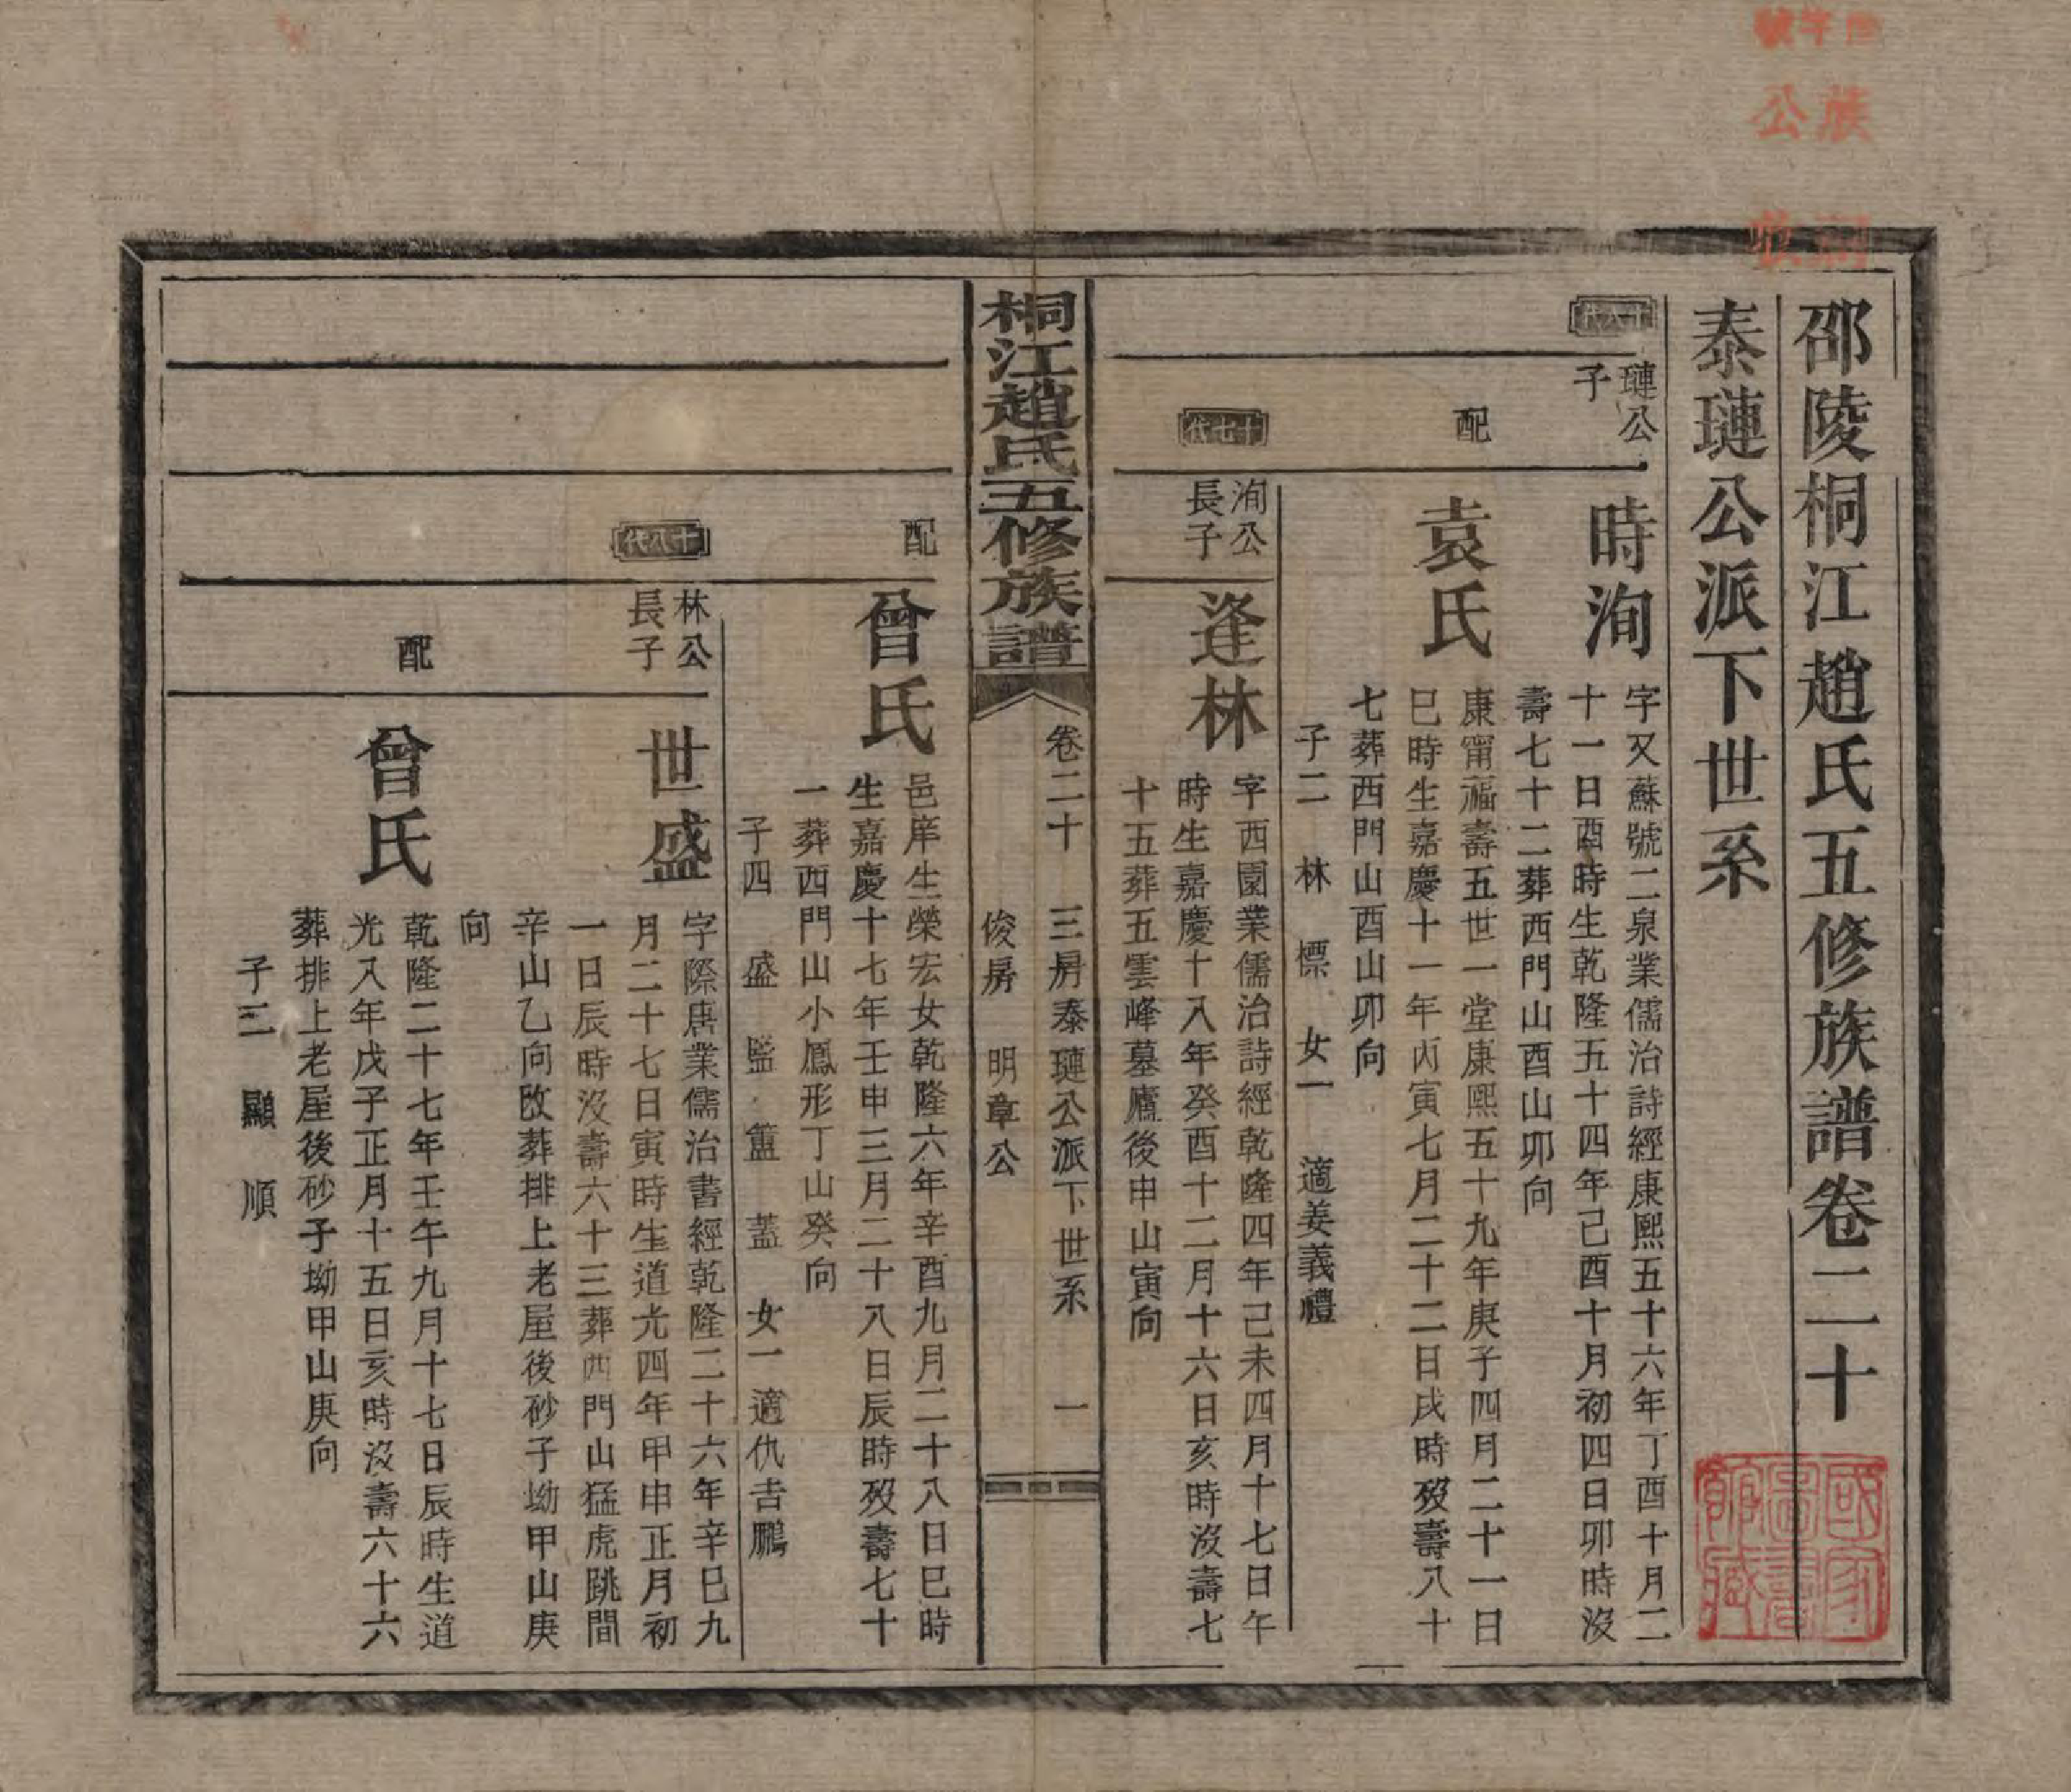 邵陵桐江趙氏五修族譜卷二十
泰璉公派下世系
璉公
子
時洵
字又蘇號二泉業儒治詩經康熙五十六年丁酉十月二
十一日酉時生乾隆五十四年己酉十月初四日卯時沒
壽七十二葬西門山酉山卯向
配
袁氏
康甯福壽五世一堂康熙五十九年庚子四月二十一日
巳時生嘉慶十一年丙寅七月二十二日戌時歿壽八十
七葬西門山酉山卯向
子二 林 標 女一 適姜義禮
十七代
洵公
長子
逢林
字西園業儒治詩經乾隆四年己未四月十七日午
時生嘉慶十八年癸酉十二月十六日亥時沒壽七
十五葬五雲峰墓廬後申山寅向
桐江趙氏五修族譜
卷二十 三房泰璉公派下世系 一
俊房 明章公
配
曾氏
邑庠生榮宏女乾隆六年辛酉九月二十八日巳時
生嘉慶十七年壬申三月二十八日辰時歿壽七十
一葬西門山小鳳形丁山癸向
子四 盛 監 簠 蓋 女一適仇吉鵬
十八代
林公
長子
世盛
字際唐業儒治書經乾隆二十六年辛巳九
月二十七日寅時生道光四年甲申正月初
一日辰時沒壽六十三葬西門山猛虎跳間
辛山乙向改葬排上老屋後砂子坳甲山庚
向
配
曾氏
乾隆二十七年壬午九月十七日辰時生道
光八年戊子正月十五日亥時沒壽六十六
葬排上老屋後砂子坳甲山庚向
子二 顯 順
國家
圖書
館藏